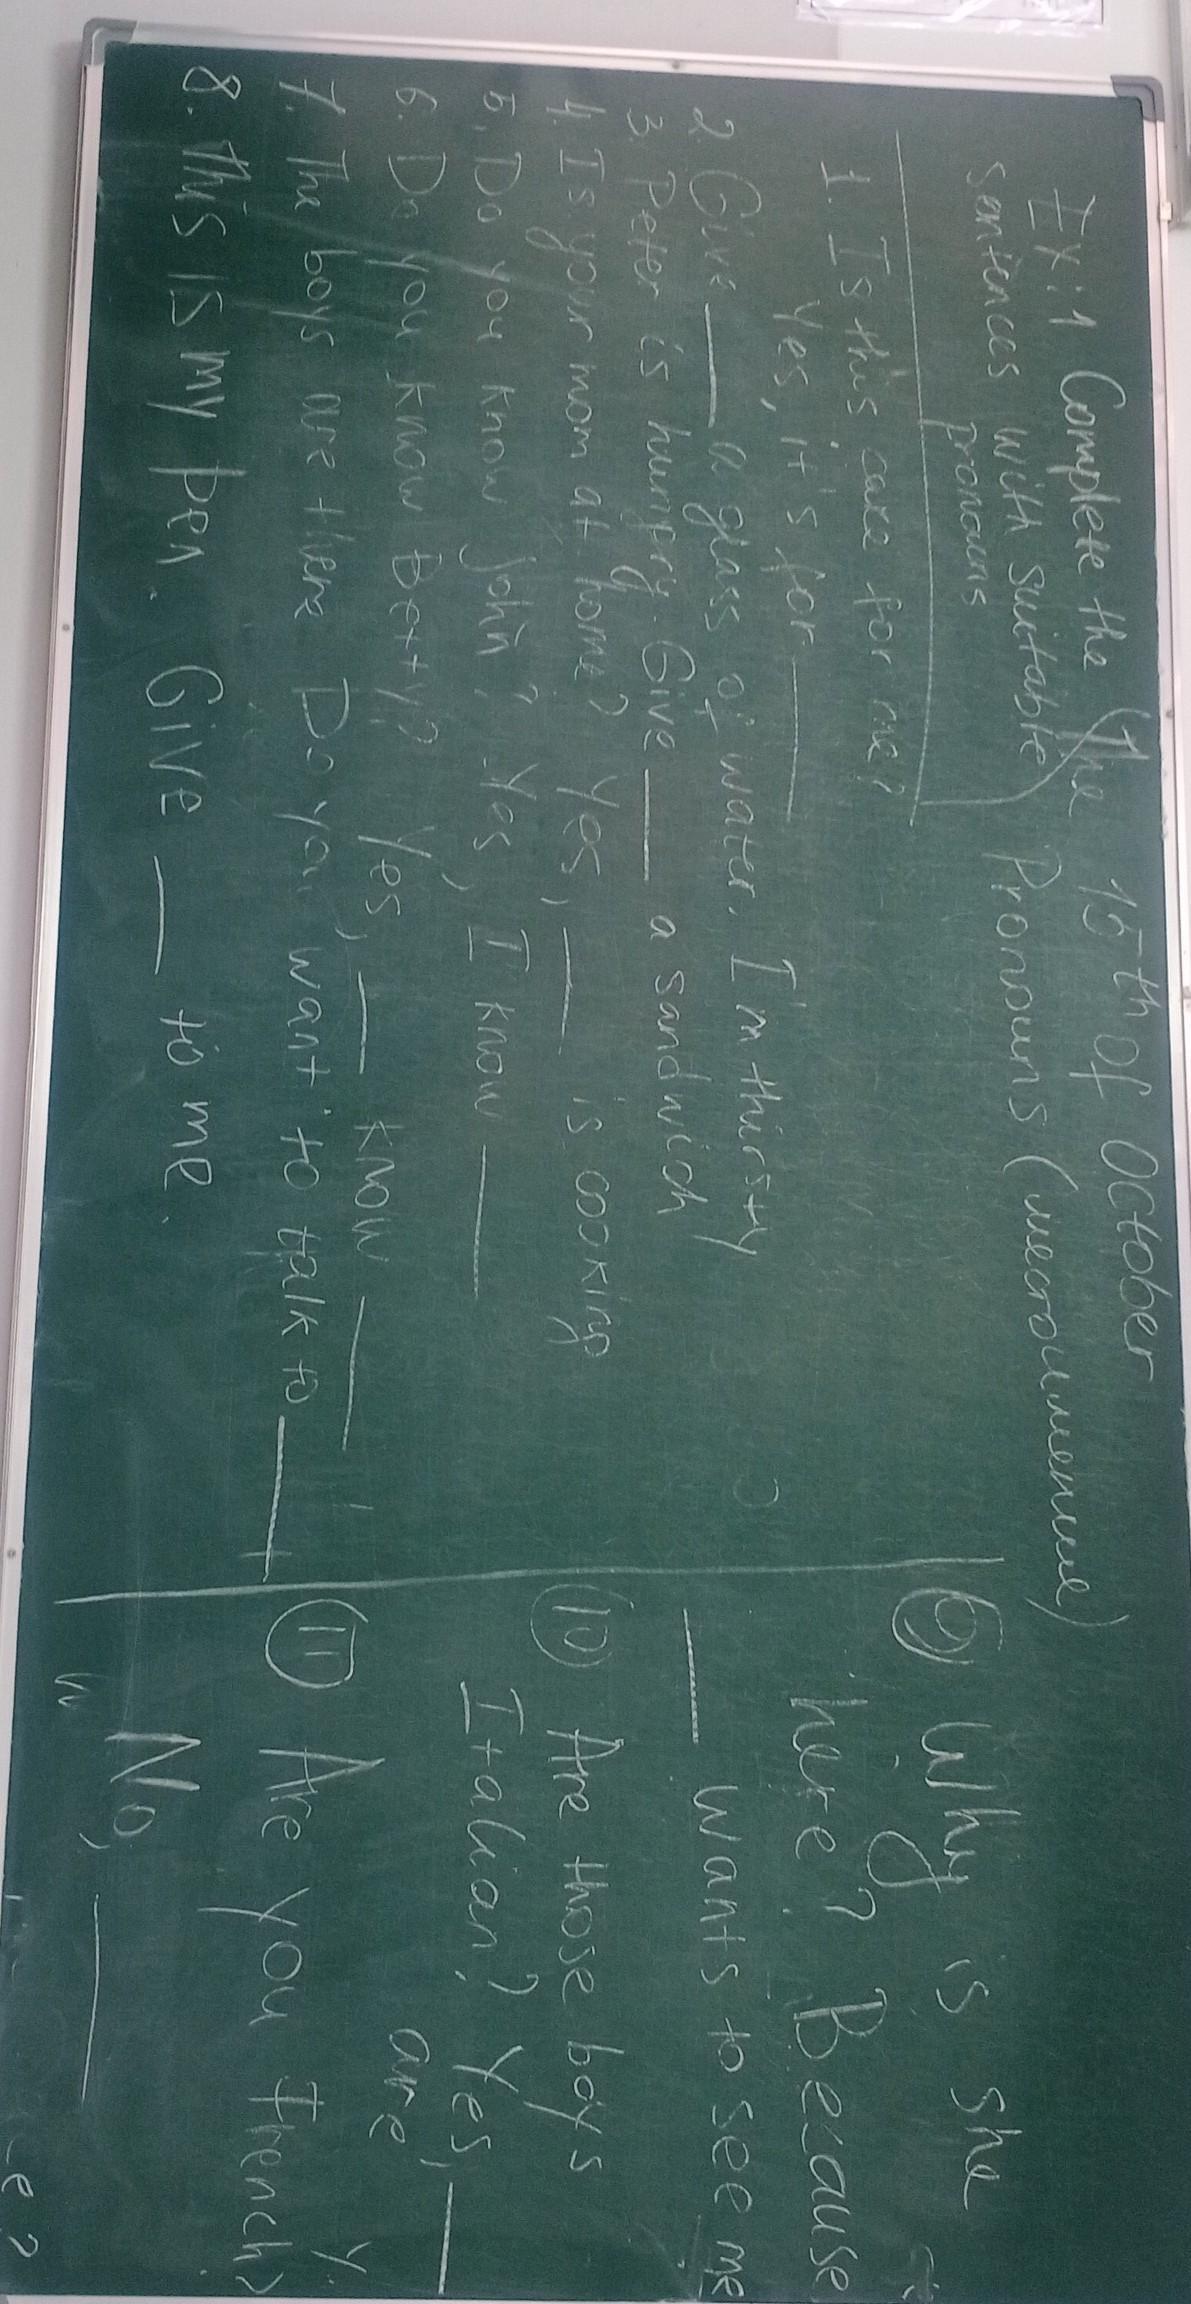 The 15th of October
Pronouns (местоимение)
Ex:1 Complete the
sentences with suitable
pronouns
1. Is this cake for me?
Yes, it's for ____
2. Give ____ a glass of water. I'm thirsty
3. Peter is hungry. Give ____ a sandwich
4. Is your mom at home? Yes, ____ is cooking
5. Do you know John? Yes, I know ____
6. Do you know Betty? Yes, ____ know ____
7. The boys are there Do you want to talk to ____
8. This is my pen. Give ____ to me.
9 Why is she
here? Because
____ wants to see me
10 Are those boys
Italian? Yes, ____
are
11 Are you French?
No, ____